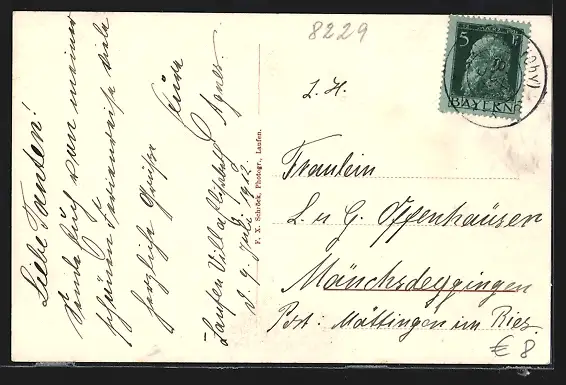 8229
5 Pf
BAYERN
(Oby)
Liebe Tanten!
Sende Euch von meiner
schönen Ferienreise viele
herzliche Grüße
Eure
Agnes.
Laufen Villa
d. 9. Juli 1912.
F. X. Schröck, Photogr., Laufen.
L. H.
Fräulein
L. u G. Offenhäuser
Mönchsdeggingen
Post: Möttingen im Ries.
€ 8